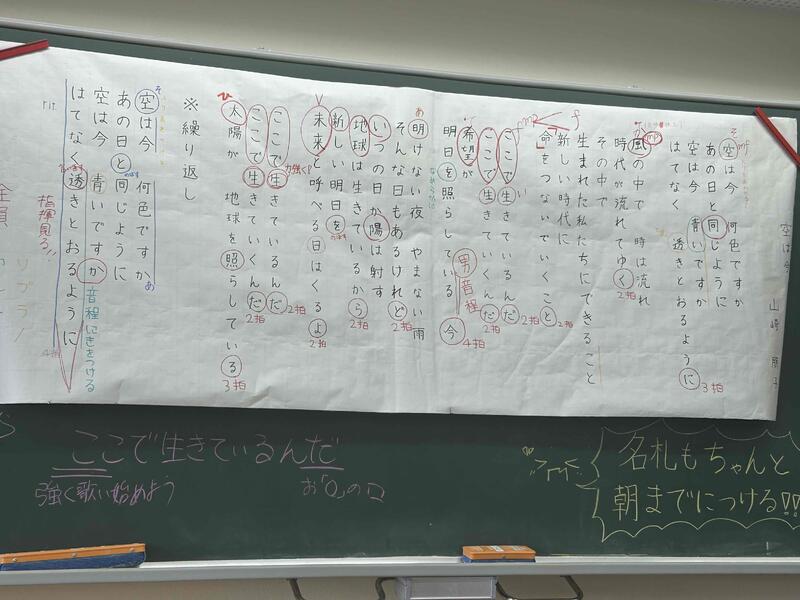 空は今
山崎 朋子
空は今 何色ですか
あの日と同じように
空は今 青いですか
はてなく 透きとおるように
3拍
mf
風の中で 時は流れ
mp
時代が流れてゆく
2拍
その中で
生まれた私たちにできること
新しい時代に
「命」をつないでいくこと
2拍
f
ここで生きているんだ
2拍
ここで生きていくんだ
2拍
希望が
男音程
明日を照らしている 今
4拍
明けない夜 やまない雨
あ
そんな日もあるけれど
2拍
いつの日か陽は射す
地球は生きているから
2拍
新しい明日を
未来と呼べる日はくるよ
2拍
V
ここで生きているんだ
2拍
力強く
ここで生きていくんだ
2拍
太陽が 地球を照らしている
ひ
3拍
※繰り返し
空は今 何色ですか
そ
あ
あの日と同じように
空は今 青いですか
音程にきをつける
はてなく 透きとおるように
4拍
rit
指揮見る!!
全員
ここで生きているんだ
強く歌い始めよう
お「O」の口
名札もちゃんと
朝までにつける!!